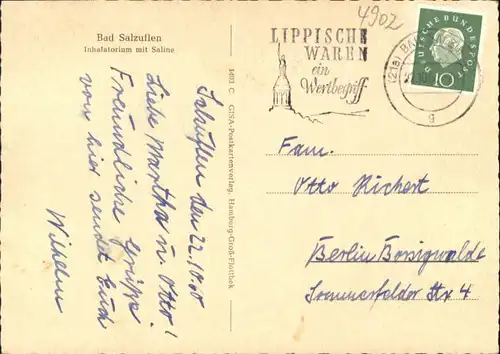 Bad Salzuflen
Inhalatorium mit Saline
4902
LIPPISCHE
WAREN
ein
Wertbegriff
DEUTSCHE BUNDESPOST
10
g
1403 C GISA-Postkartenverlag, Hamburg-Groß-Flottbek
Salzuflen den 22.10.60
Liebe Martha u. Otto!
Freundliche Grüße
von hier sendet Euch
Wilhelm
Fam.
Otto Richert
Berlin Borsigwalde
Sommerfelder Str 4